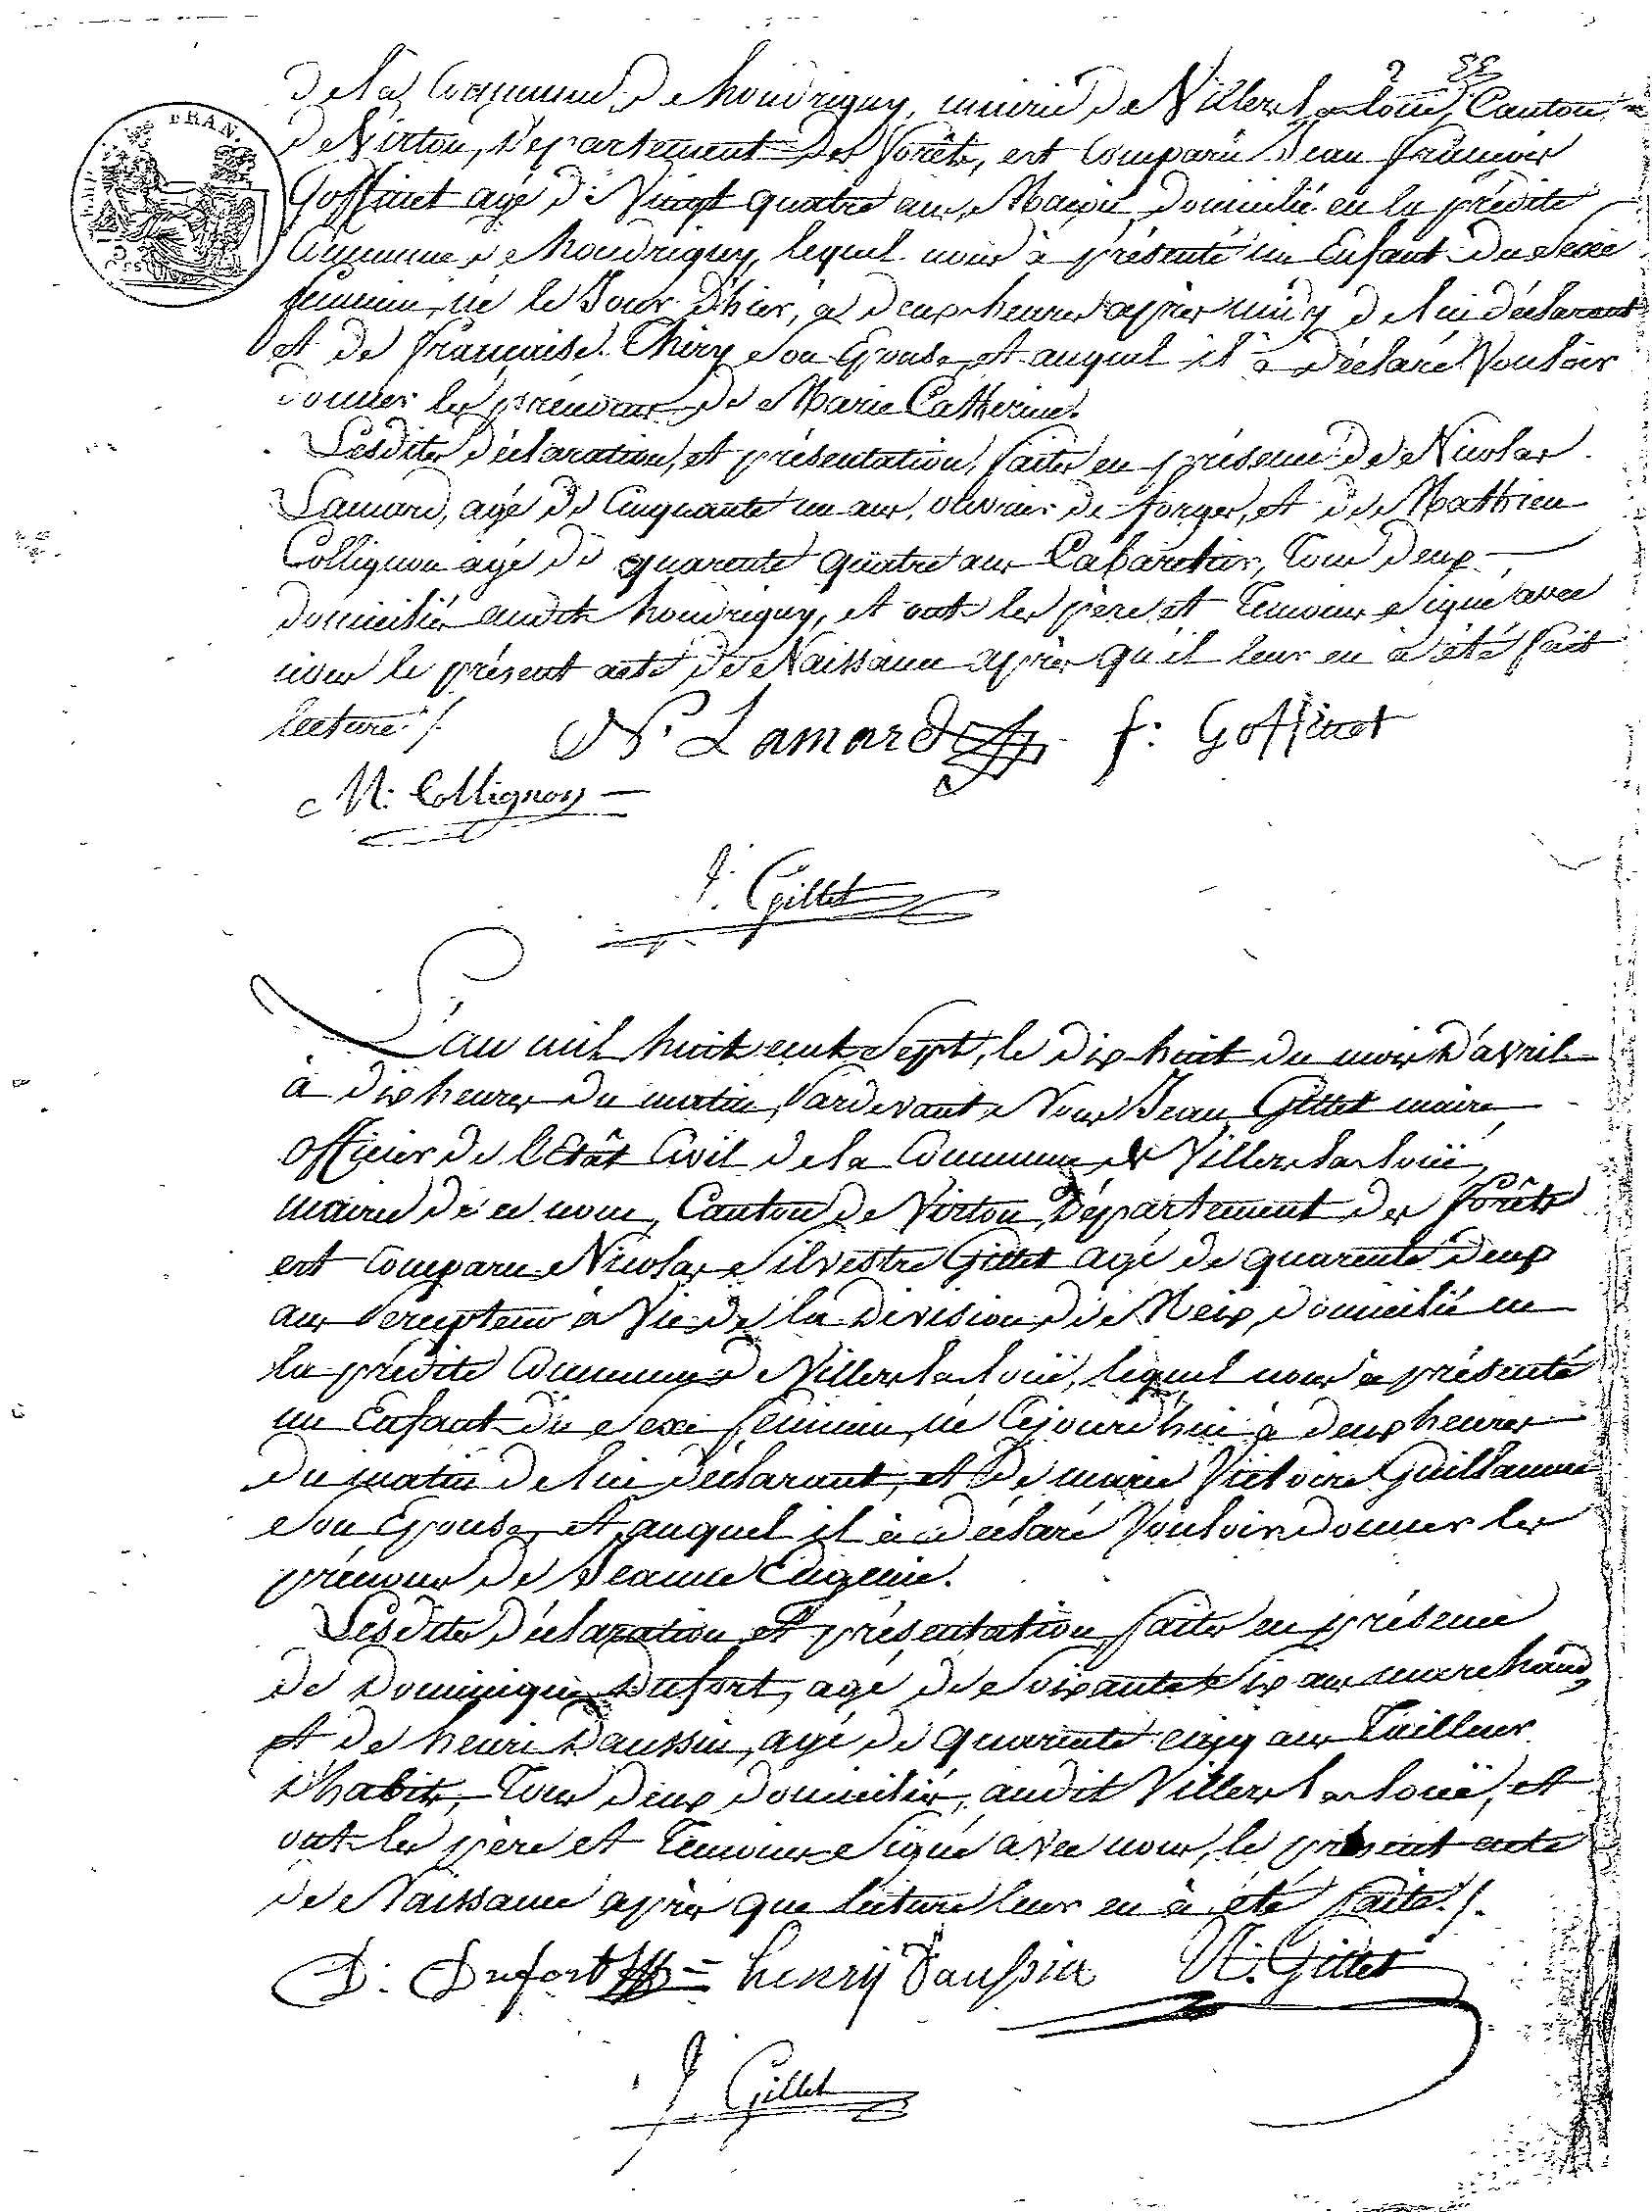 de la Commune de houdrigny, mairie de Villers la loue, Canton
de Virton, Département des forêts, est Comparu Jean francois
Goffinet agé de Vingt quatre ans, Maçon domicilié en la prédite
Commune de houdrigny, lequel nous à présenté un Enfant du Sexe
feminin, né le Jour d'hier, à deux heures après midy de lui déclarant
et de françoise Thiry Son Epouse, et auquel il à déclaré Vouloir
donner les prénoms de Marie Catherine.
Lesdites déclaration, et présentation, faites en présence de Nicolas
Lamard, agé de Cinquante un ans, ouvrier de forges, et de Mathieu
Collignon agé de quarente quatre ans Cabaretier, Tous deux
domiciliés audit houdrigny, et ont les père et Temoins Signé avec
nous le présent acte de Naissance après qu'il leur en à été fait
lecture ./.
N. Lamard f: Goffinet
M: Collignon
J. Gillet
L'an mil huit cent Sept, le dix huit du mois d'avril
à dix heures du matin, Pardevant Nous Jean Gillet maire
officier de l'Etât Civil de la Commune de Villers la loué,
mairie de ce nom, Canton de Virton, Département des forêts
est Comparu Nicolas Silvestre Gillet agé de quarente deux
ans Percepteur à Vie de la Division de Meix, domicilié en
la prédite Commune de Villers la loué, lequel nous à présenté
un Enfant du Sexe feminin, né Cejourd'hui à deux heures
du matin de lui déclarant, et De marie Victoire Guillaume
Son Epouse, et auquel il à déclaré Vouloir donner les
prénoms de Jeanne Eugenie.
Lesdites déclaration et présentation, faites en présence
de Dominique Dufort, agé de Soixante Six ans marchand,
et de henri Daussin, agé de quarente cinq ans Tailleur
d'habits, Tous deux domiciliés, audit Villers la loué, et
ont les père et Temoins Signé avec nous, le présent acte
de Naissance après que lecture leur en à été faite ./.
D. Dufort henrij Daussin N. Gillet
J Gillet